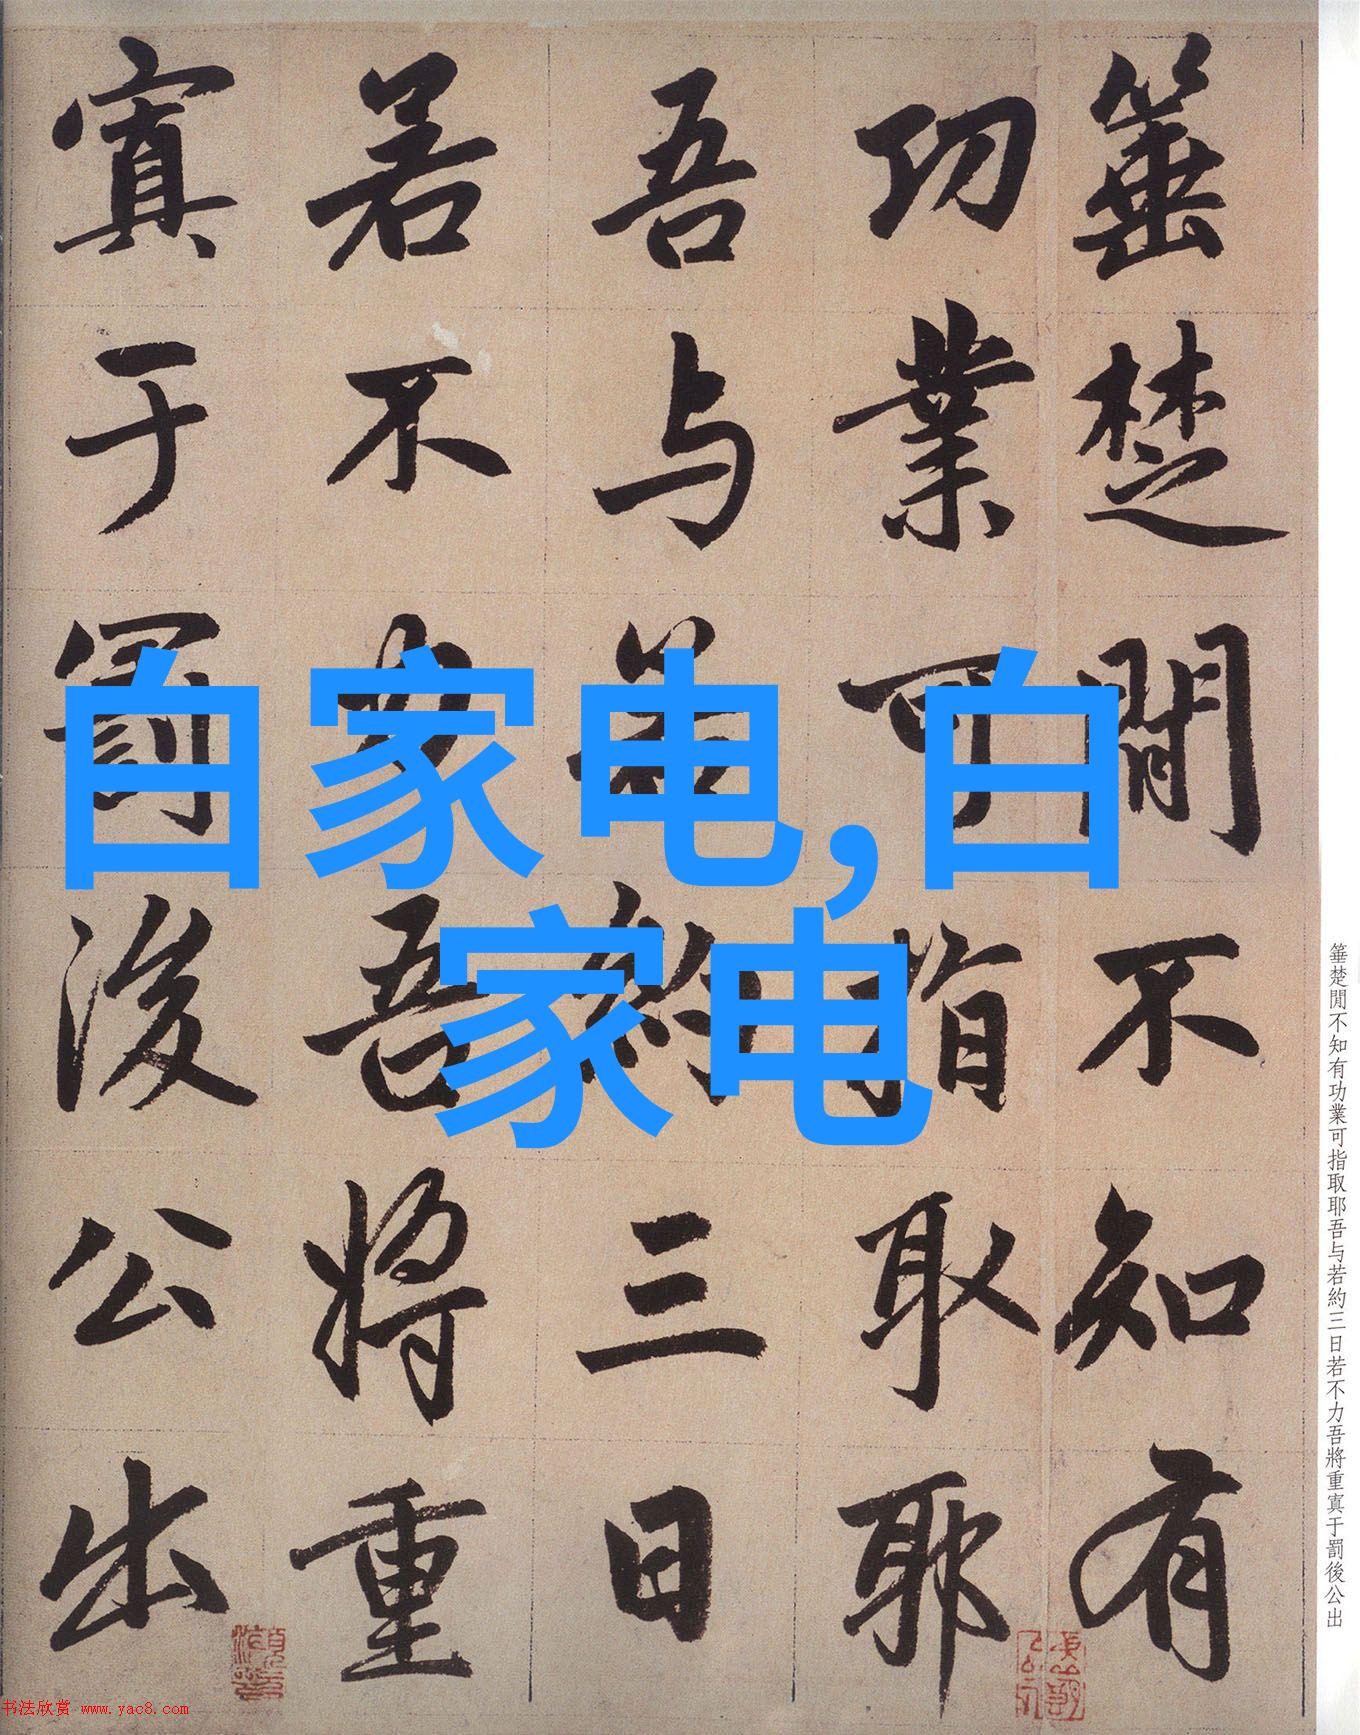 箠楚間不知有
功業可指取耶
吾与若約三日
若不力吾將重
寘于罰後公出
自家电,白
家电
箠楚閒不知有功業可指取耶吾与若約三日若不力吾將重寘于罰後公出
书法欣赏 www.yac8.com